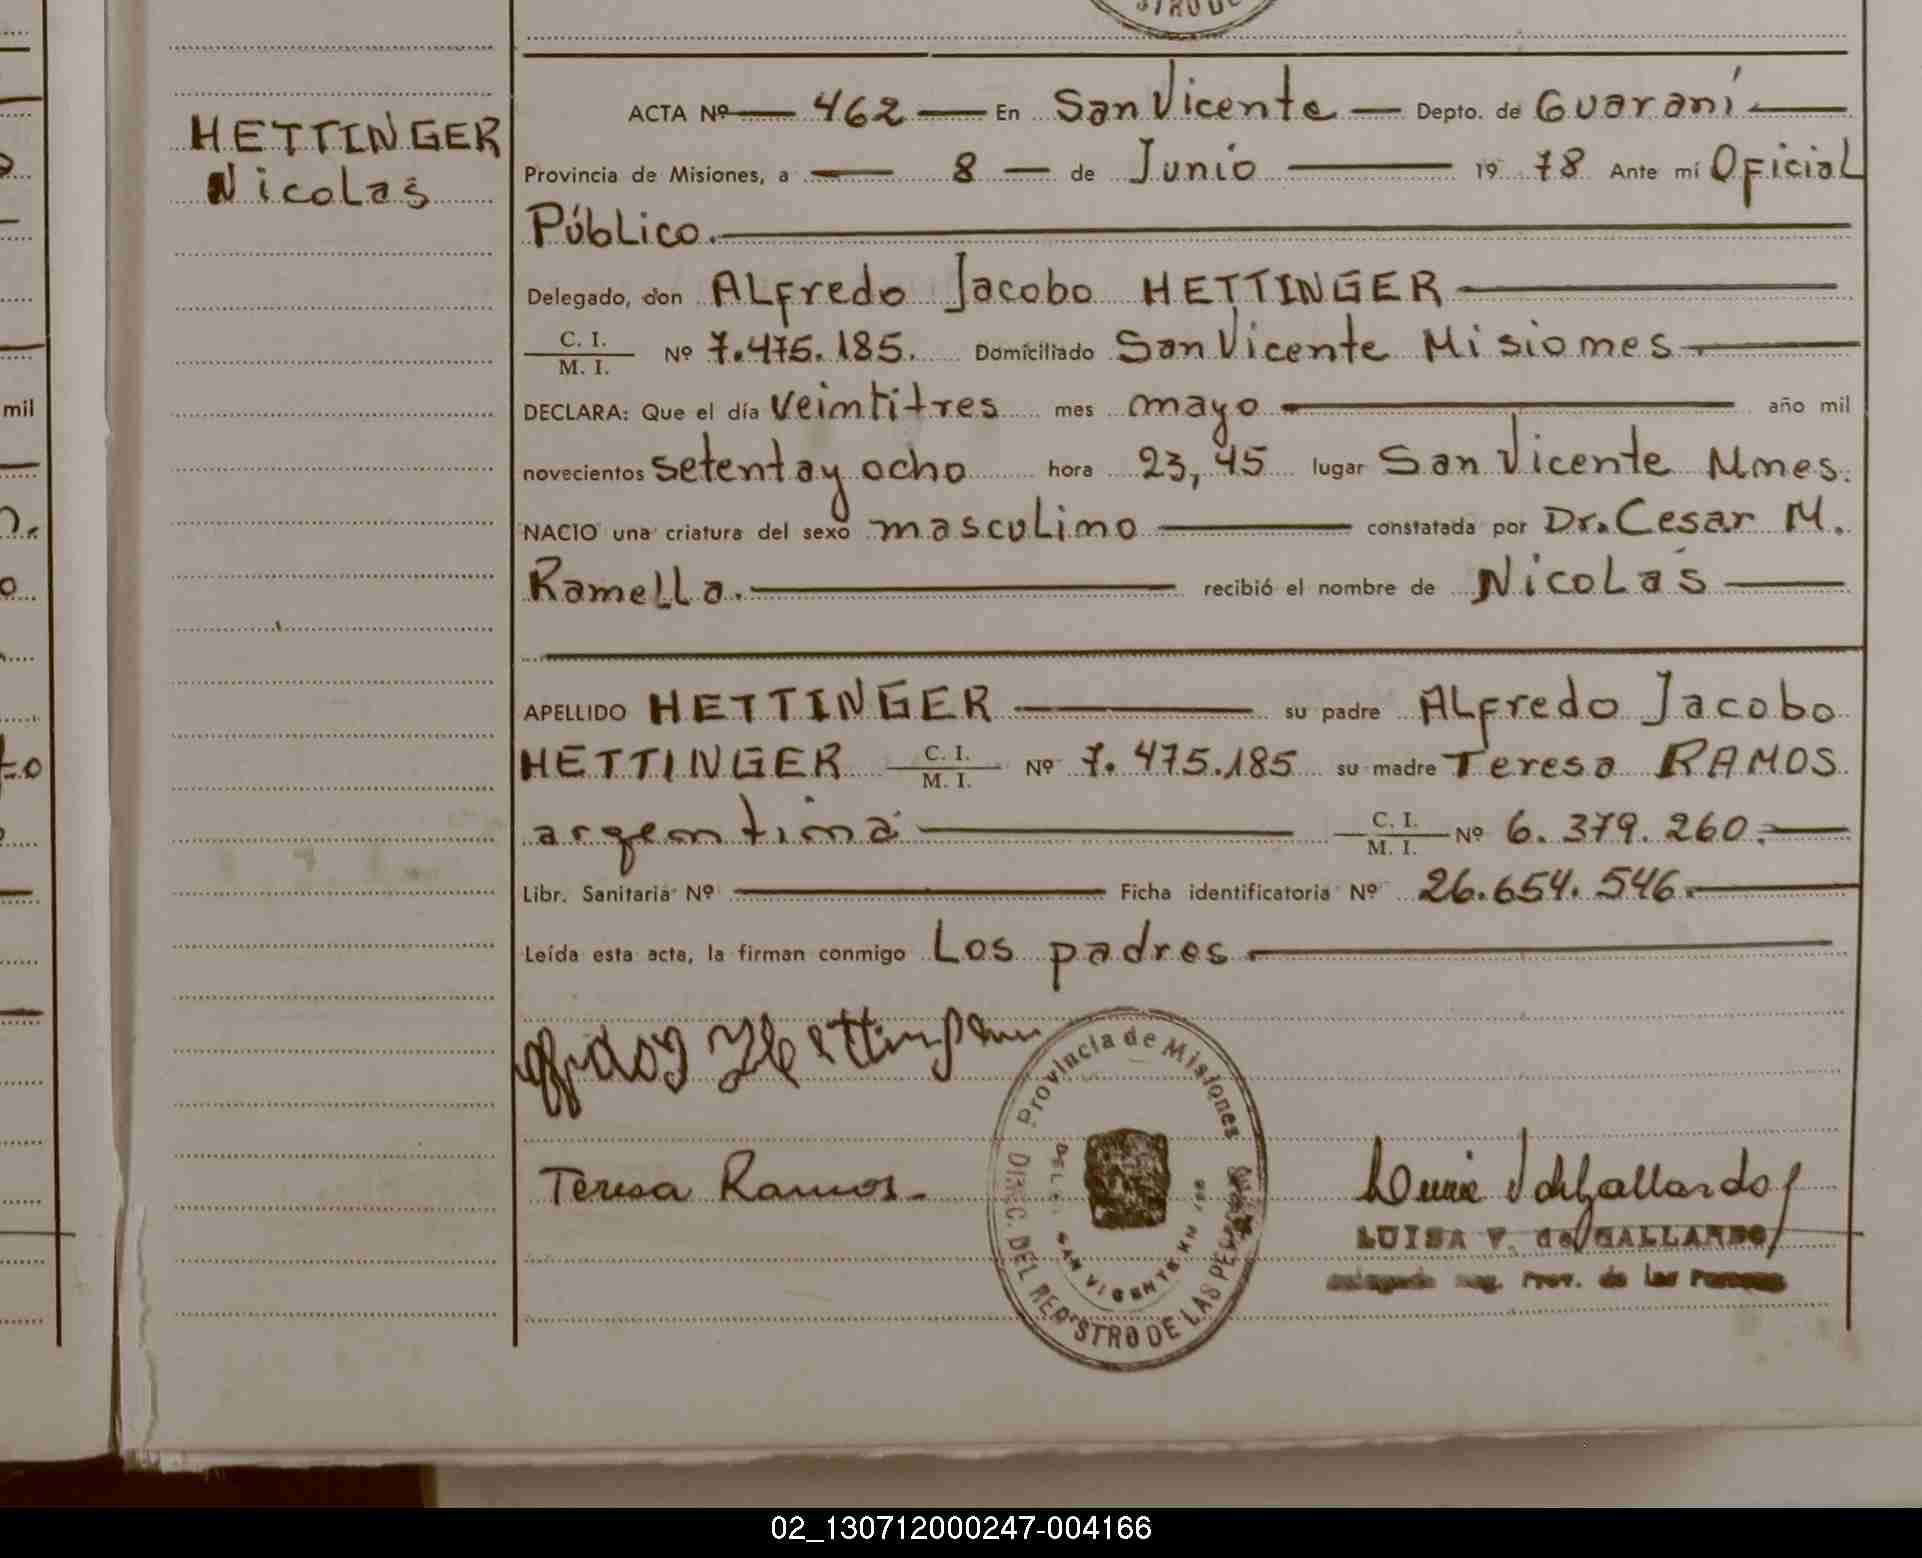 STRO DE
HETTINGER
Nicolas
ACTA Nº 462 En San Vicente Depto. de Guaraní
Provincia de Misiones, a 8 de Junio 19 78 Ante mí Oficial
Público.
Delegado, don ALfredo Jacobo HETTINGER
C. I.
M. I.
Nº 7.475.185. Domiciliado San Vicente Misiones
DECLARA: Que el día veintitres mes mayo año mil
novecientos setenta y ocho hora 23,45 lugar San Vicente Mnes.
NACIO una criatura del sexo masculino constatada por Dr. Cesar M.
Ramella. recibió el nombre de Nicolás
APELLIDO HETTINGER su padre ALfredo Jacobo
HETTINGER C. I. M. I. Nº 7.475.185 su madre Teresa RAMOS
argentina C. I. M. I. Nº 6.379.260.
Libr. Sanitaria Nº Ficha identificatoria Nº 26.654.546.
Leída esta acta, la firman conmigo Los padres
Hettinger
Provincia de Misiones
DIREC. DEL REGISTRO DE LAS PERSONAS
SAN VICENTE
Teresa Ramos
LUISA V. de GALLARDO
Prov. de las Personas
mil
02_130712000247-004166